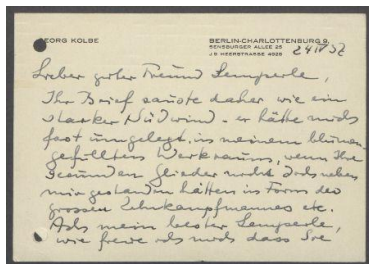 GEORG KOLBE
BERLIN-CHARLOTTENBURG 9.
SENSBURGER ALLEE 25
J9 HEERSTRASSE 4928
24 IV 32
Lieber guter Freund Lemperle,
Ihr Brief sauste daher wie ein
starker Südwind. er hätte mich
fast umgelegt, in meinem blumen-
gefüllten Werkraum, wenn Ihre
gesunden Glieder nicht dort neben
mir gestanden hätten in Form des
grossen Zehnkampfmannes etc.
Ach mein bester Lemperle,
wie freue ich mich dass Sie